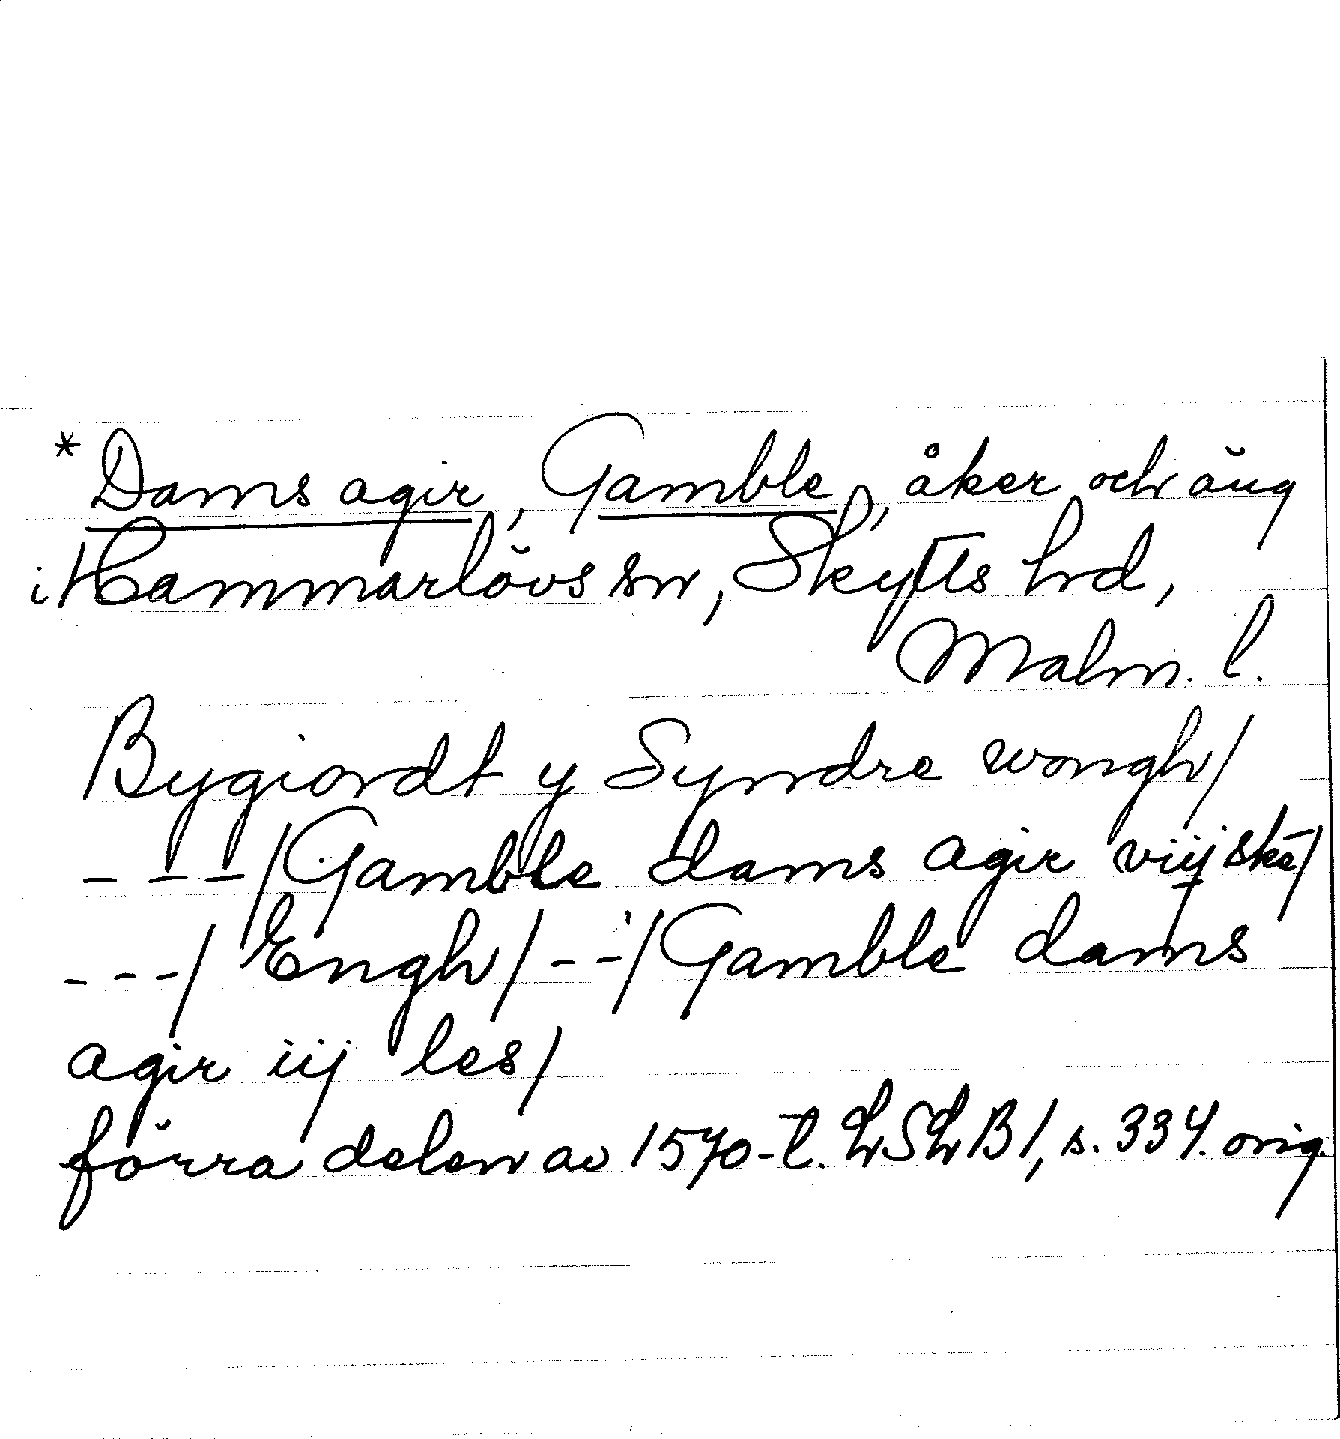 * Dams agir, Gamble, åker och äng
i Hammarlövs sn, Skytts hrd,
Malm. l.
Bygiordt y Syndre wongh/
- - -/Gamble dams agir viij ske/
- - -/ Engh/ - - -/Gamble dams
agir iij les/
förra delen av 1570-t. LSLB 1, s. 334. orig.